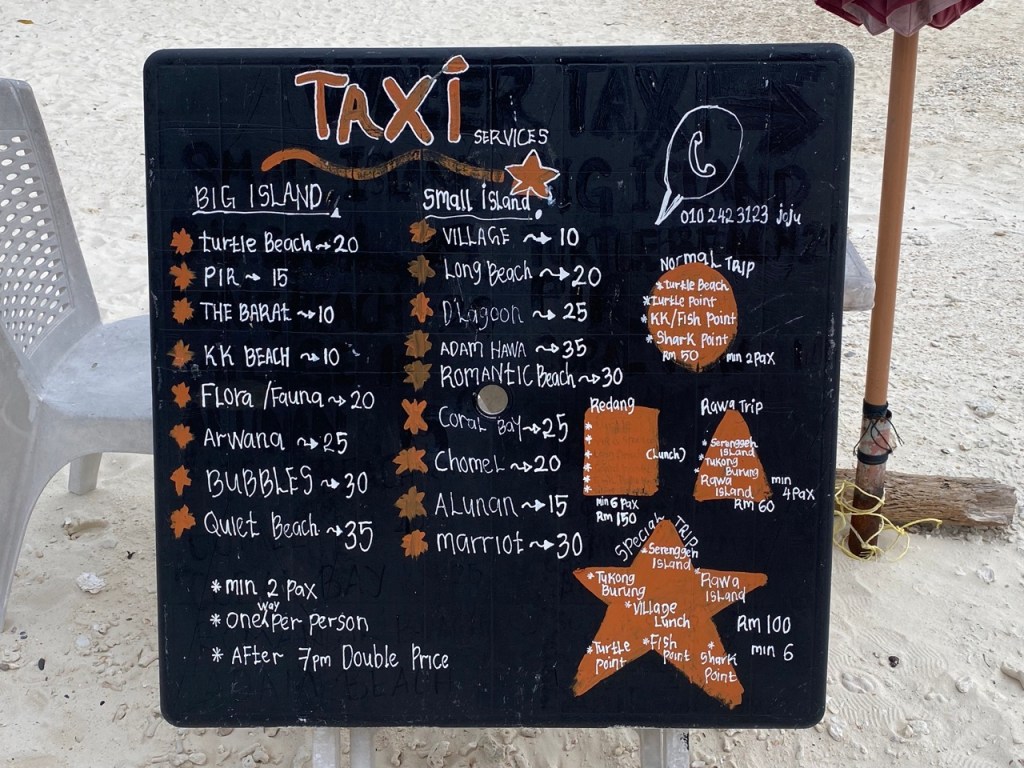 TAXi
SERVICES
BIG ISLAND
turtle Beach ~> 20
PIR ~> 15
THE BARAT ~> 10
KK BEACH ~> 10
FLORA / Fauna ~> 20
Arwana ~> 25
BUBBLES ~> 30
Quiet Beach ~> 35
* min 2 pax
* one way per person
* AFter 7pm Double Price
Small island
VILLAGE ~> 10
Long Beach ~> 20
D'Lagoon ~> 25
ADAM HAWA ~> 35
ROMANTIC Beach ~> 30
Coral Bay ~> 25
CHomel ~> 20
ALunan ~> 15
marriot ~> 30
010 242 3123 jaju
Normal TRIP
* turtle Beach
* turtle Point
* KK/Fish Point
* Shark Point
Rm 50 min 2 Pax
Redang
(Lunch)
min 6 Pax
Rm 150
Rawa Trip
* Serenggeh
ISLAND
* Tukong
Burung
* Rawa
ISland
min
4 Pax
Rm 60
Special TRIP
* Serenggeh
ISland
* Tukong
Burung
* Rawa
ISland
* Village
Lunch
* Turtle
Point
* Fish
Point
* Shark
Point
Rm 100
min 6